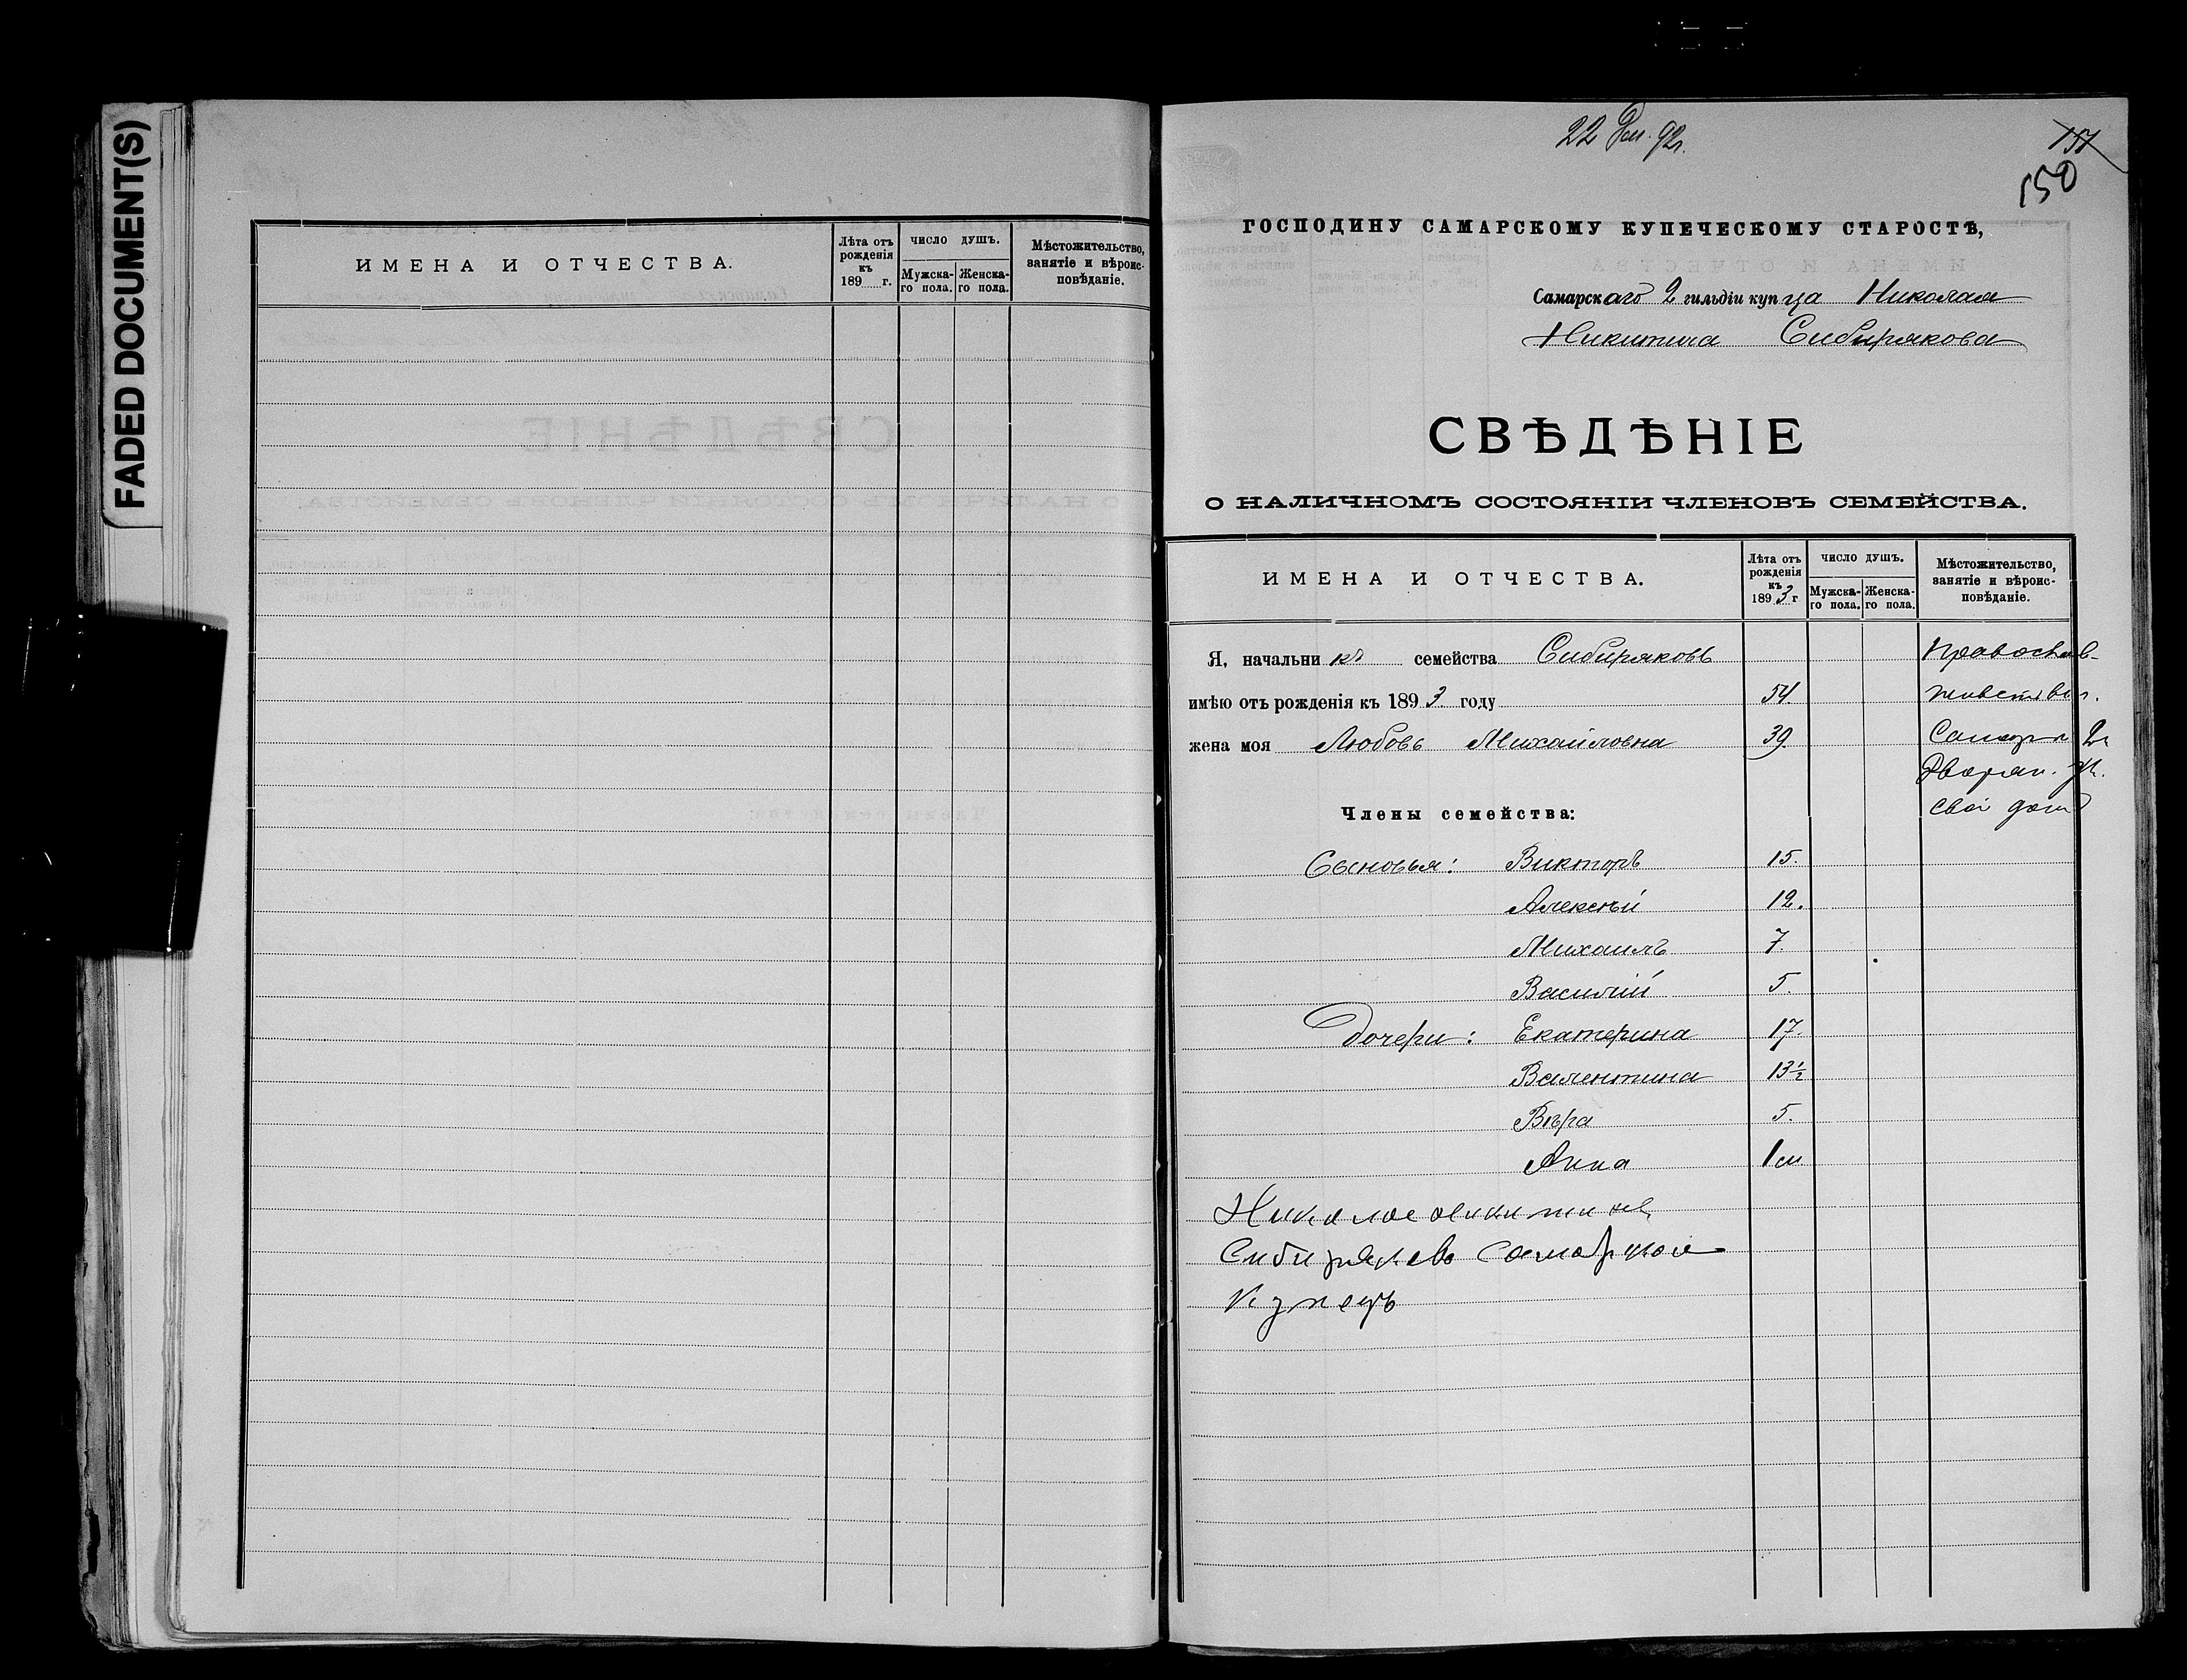 FADED DOCUMENT(S)
ИМЕНА И ОТЧЕСТВА.
Лѣта отъ рожденія къ 189 г.
ЧИСЛО ДУШЪ.
Мужска-го пола.
Женска-го пола.
Мѣстожительство, занятіе и вѣроис-повѣданіе.
22 Дек. 92 г.
151
150
ГОСПОДИНУ САМАРСКОМУ КУПЕЧЕСКОМУ СТАРОСТѢ,
Самарскаго 2 гильдіи купца Николая
Никитича Сибирякова
СВѢДѢНІЕ
О НАЛИЧНОМЪ СОСТОЯНІИ ЧЛЕНОВЪ СЕМЕЙСТВА.
ИМЕНА И ОТЧЕСТВА.
Лѣта отъ рожденія къ 1893 г
ЧИСЛО ДУШЪ.
Мужска-го пола.
Женска-го пола.
Мѣстожительство, занятіе и вѣроис-повѣданіе.
Я, начальникъ семейства Сибиряковъ Православ-
имѣю отъ рожденія къ 1893 году 54.
жена моя Любовь Михайловна 39.
Дворян. ул.
свой домъ
Члены семейства:
Сыновья: Викторъ 15.
Алексѣй 12.
Михаилъ 7.
Василій 5.
Дочери: Екатерина 17.
Валентина 13½
Вѣра 5.
Анна 1 м
Сибиряковъ Самарской
Купецъ